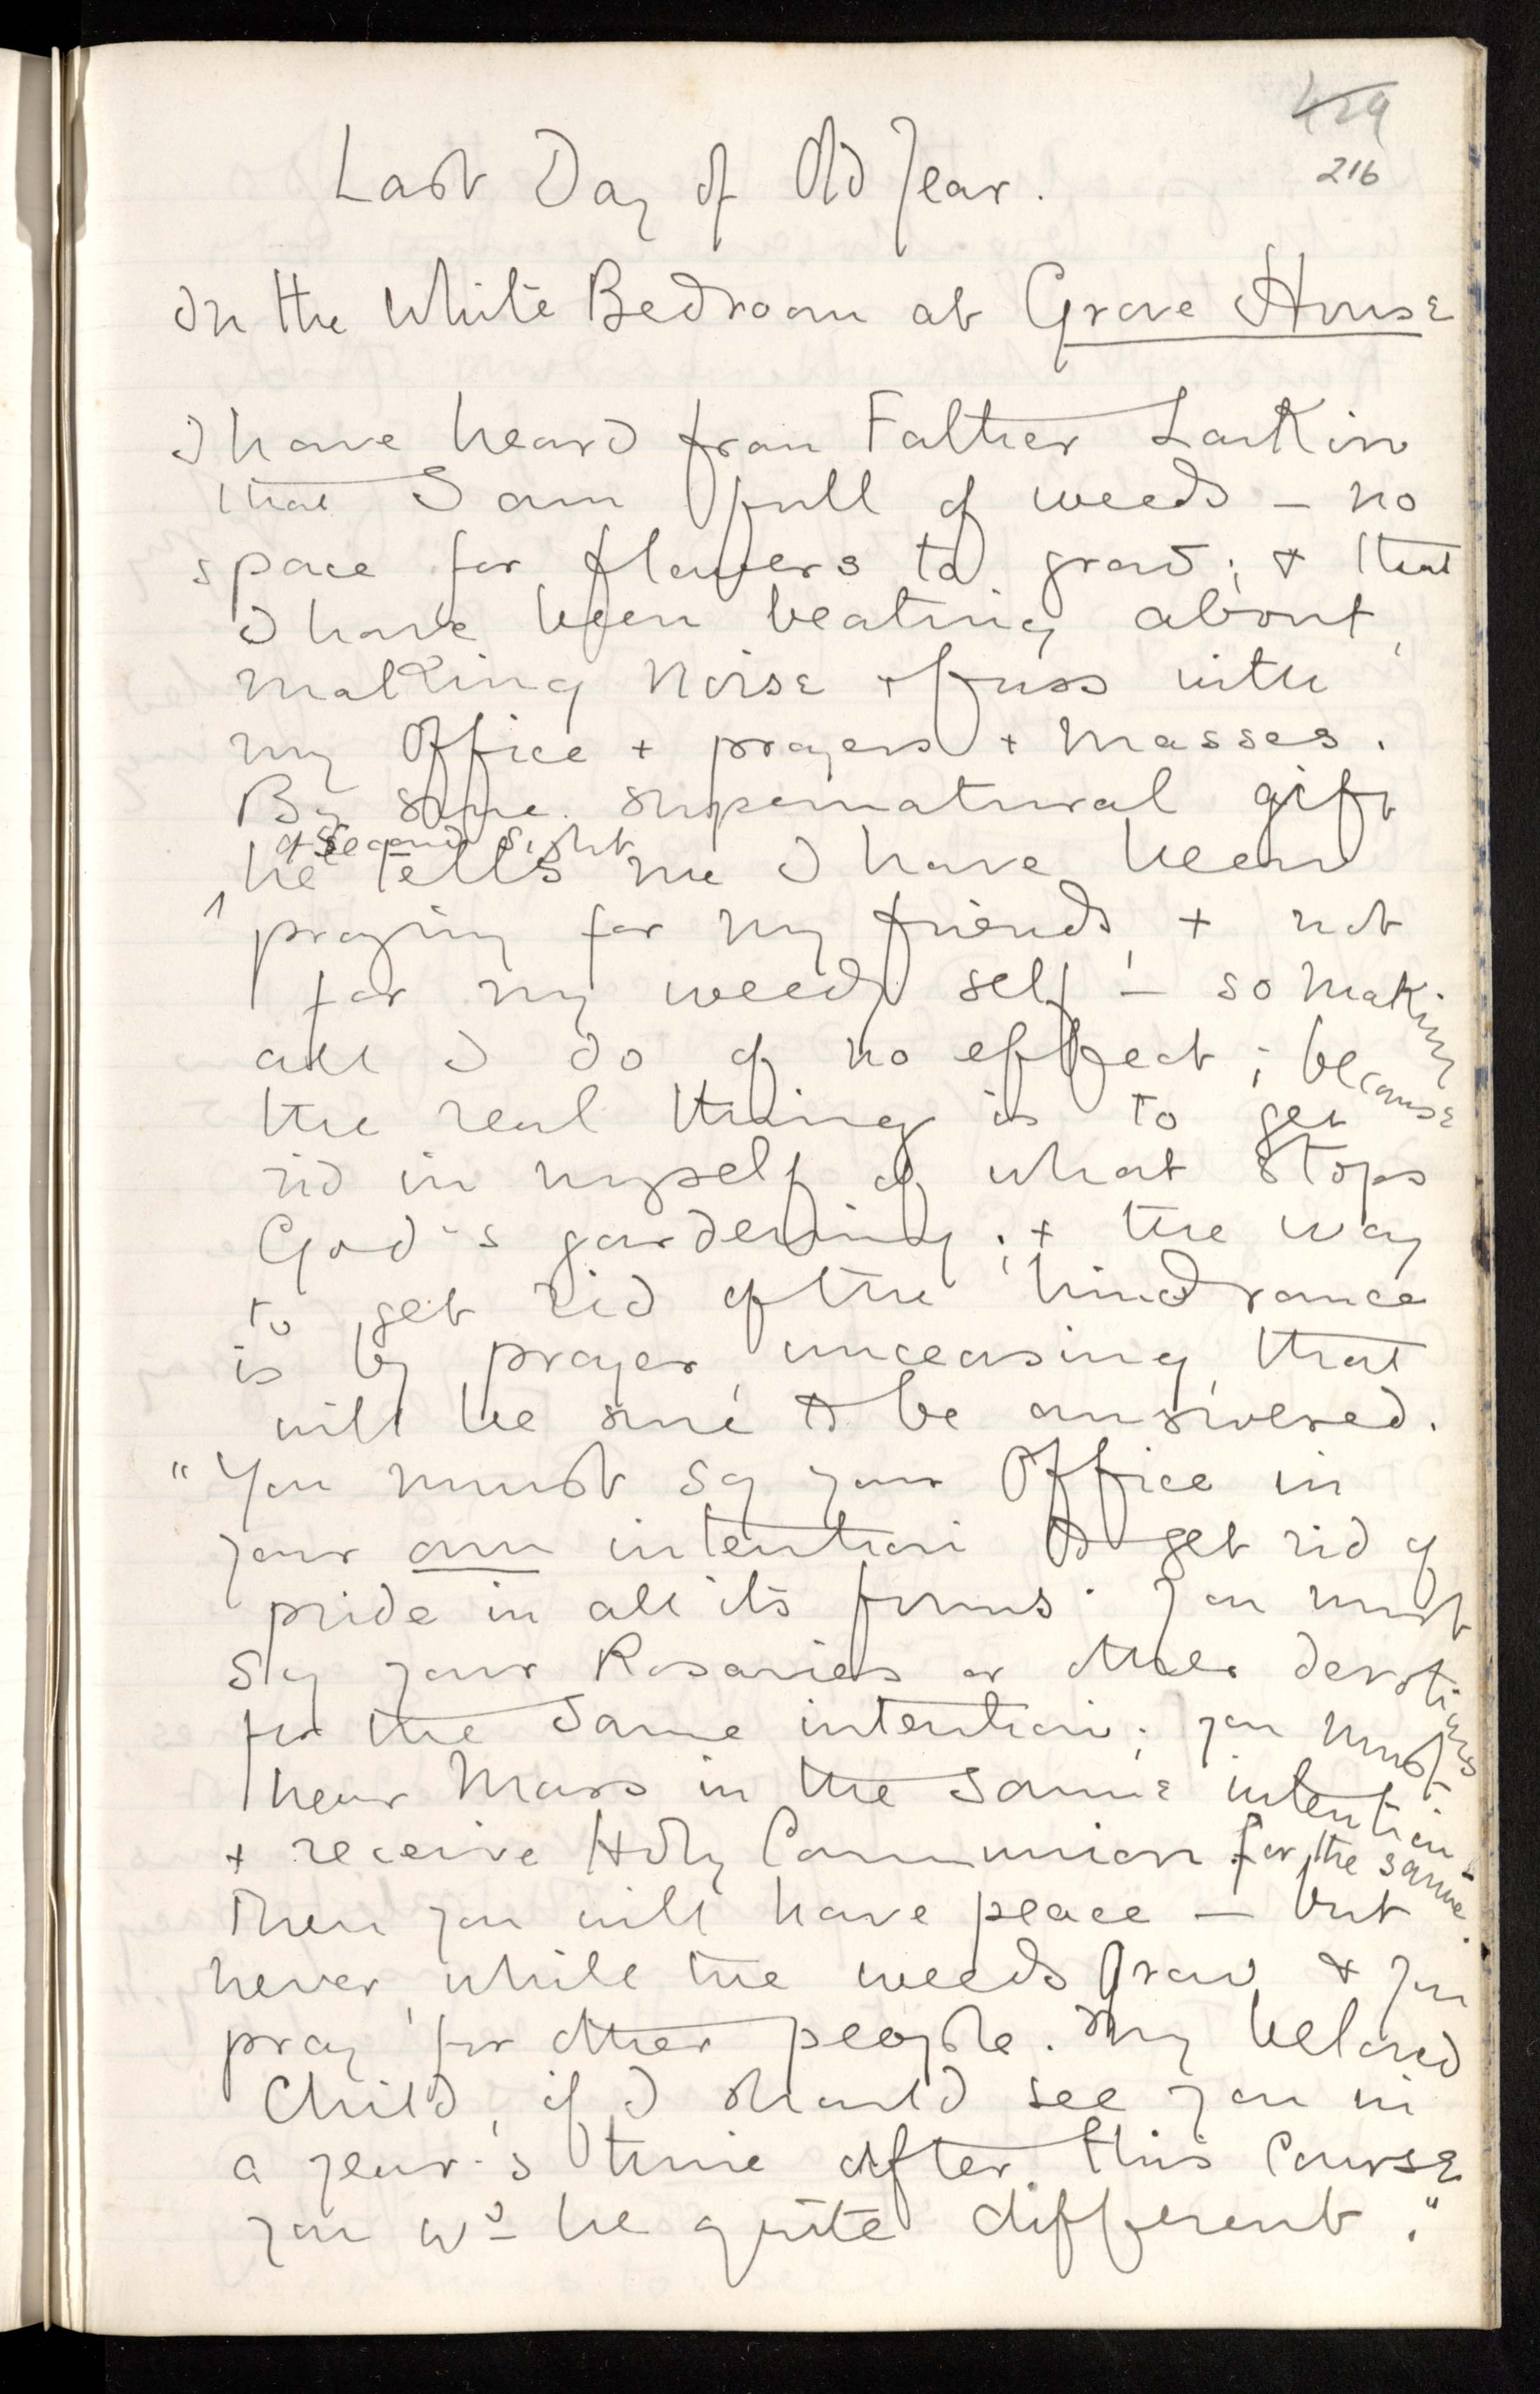 429
216
Last Day of Old Year.
In the White Bedroom at Grove House
I have heard from Father Larkin
that I am full of weeds – no
space for flowers to grow; + that
I have been beating about,
making noise + fuss with
my Office + prayers + Masses.
By some supernatural gift
of Second Sight
he tells me I have been
praying for my friends, + not
for my weedy self – so making
all I do of no effect; because
the real thing is to get
rid in myself of what stops
God's gardening; + the way
to get rid of the hindrance
is by prayer, unceasing, that
will be sure to be answered.
"You must say your Office in
your own intention to get rid of
pride in all its forms. You must
say your Rosaries or other devotions
for the same intention; you must
hear Mass in the same intention
+ receive Holy Communion for the same.
Then you will have peace – but
never, while the weeds grow, + you
pray for other people. My beloved
Child, if I should see you in
a year's time after this Course
you wd be quite different."